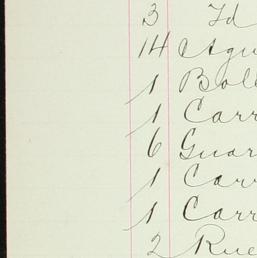 3 Id
14 Agu
1 Boll
1 Carr
6 Guar
1 Carr
1 Carr
2 Rue